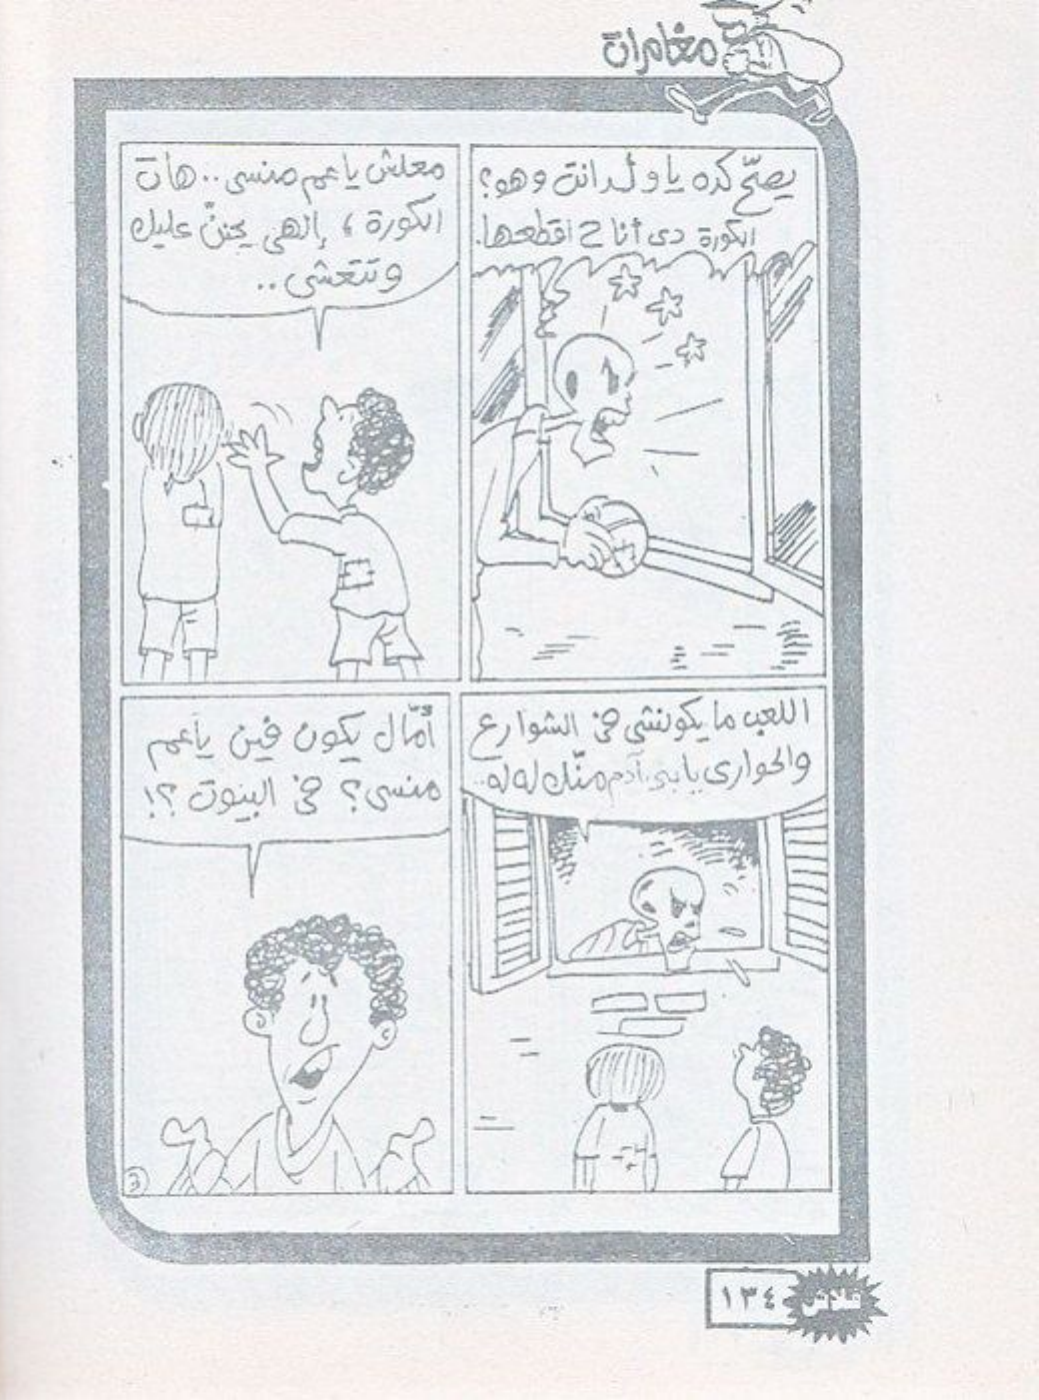 مغامرات
يصحّ كده يا ولد انت وهو؟
الكورة دى أنا ح اقطعها.
معلش يا عم منسى.. هات
الكورة، إلهى يحننّ عليك
وتتعشى..
اللعب ما يكونشى فى الشوارع
والحوارى يا بنى آدم منّك له له..
أمّال يكون فين يا عم
منسى؟ فى البيوت؟!
١٣٤
فلاش